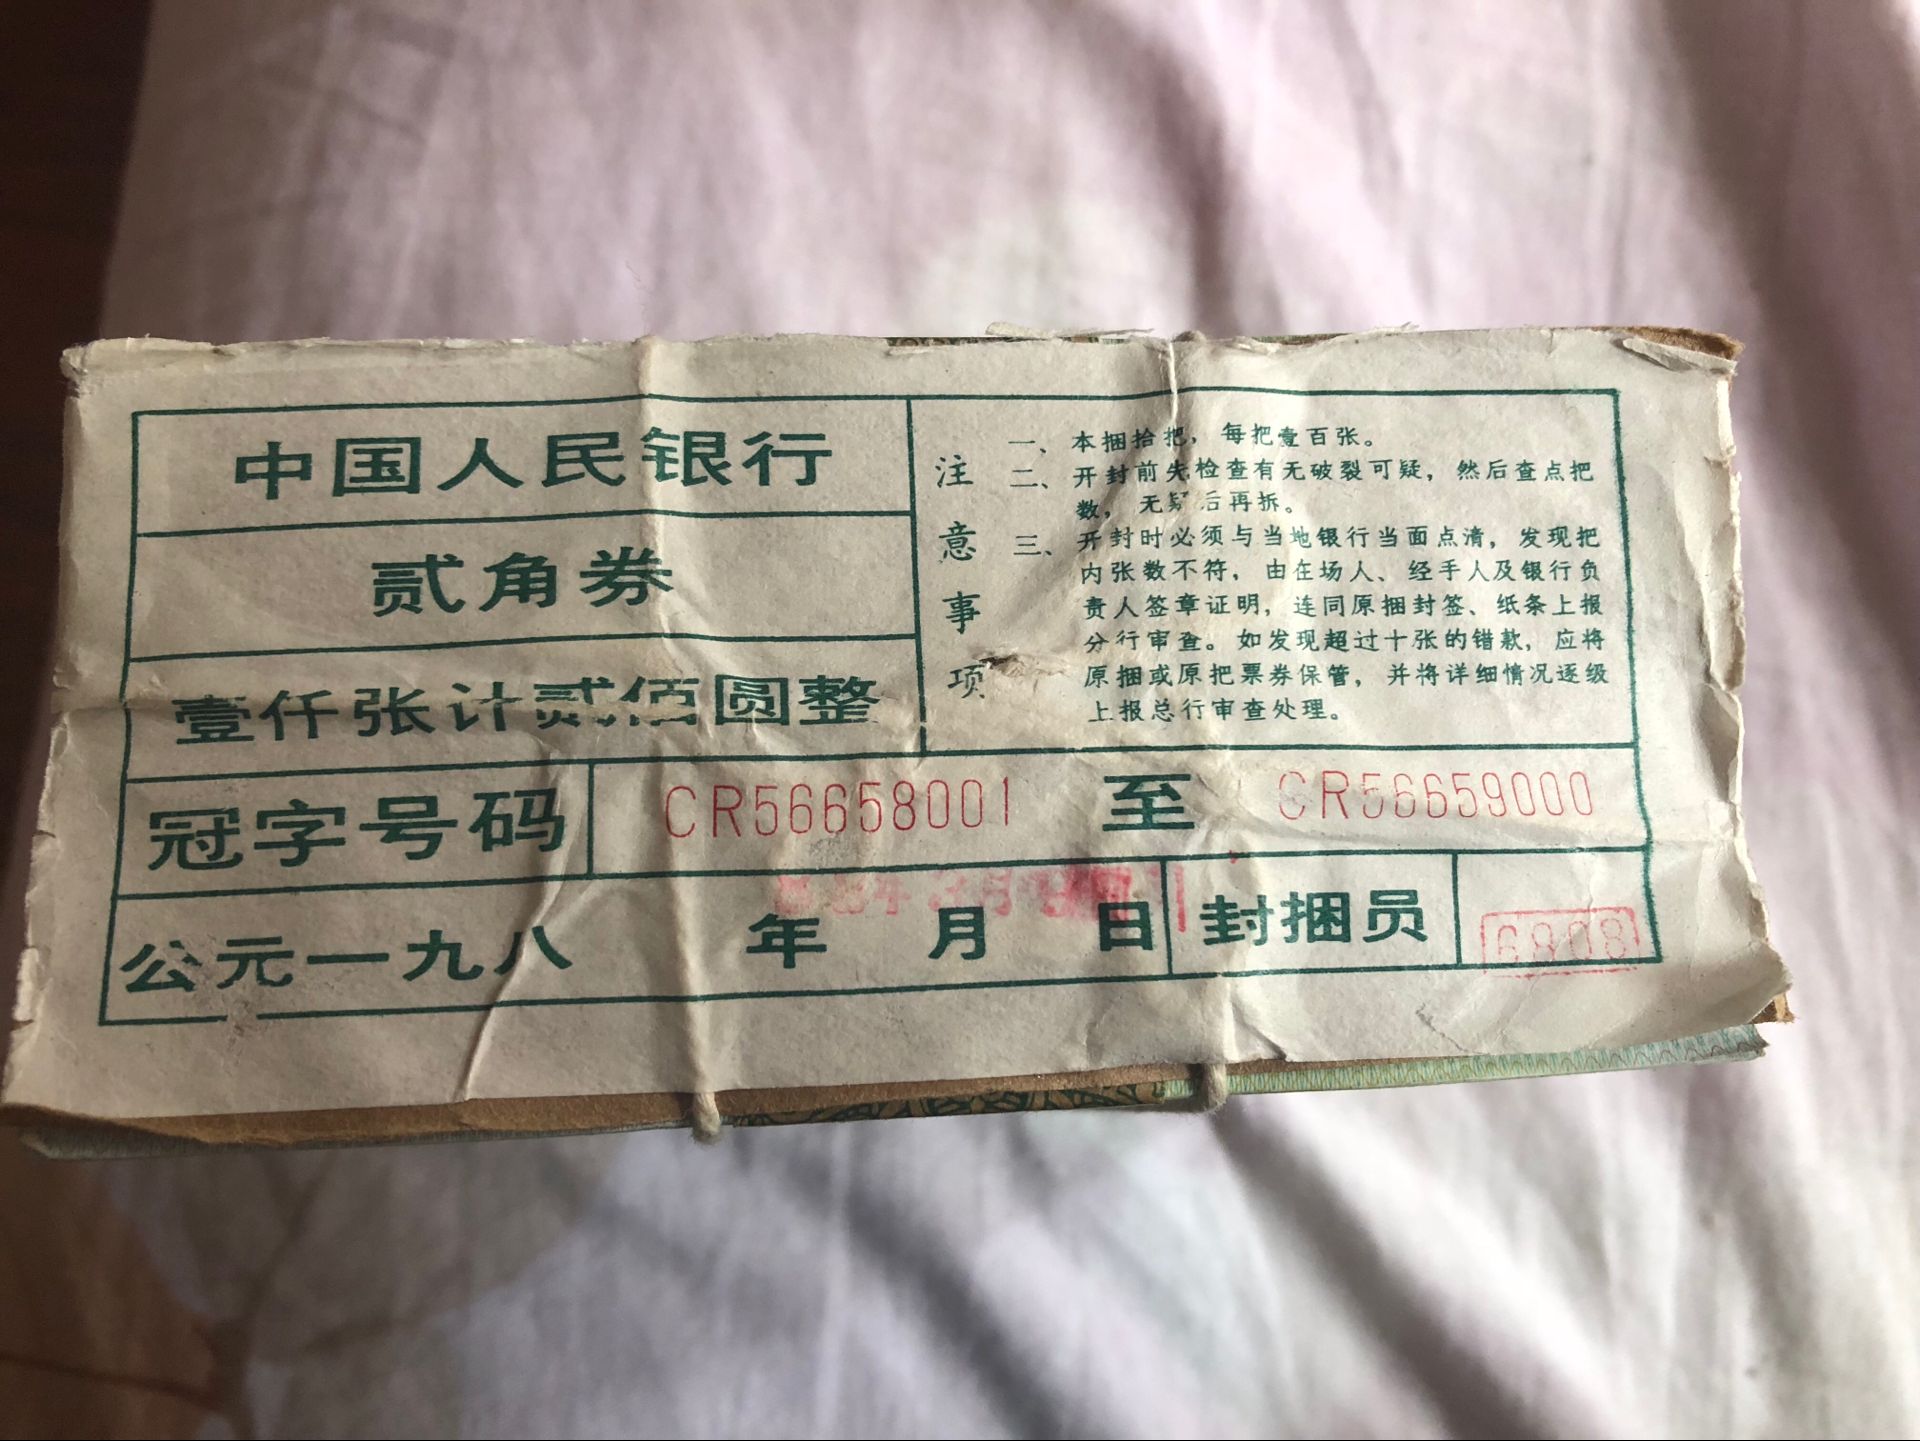 中国人民银行
贰角券
壹仟张计贰佰圆整
注意事项
一、本捆拾把，每把壹百张。
二、开封前先检查有无破裂可疑，然后查点把
数，无疑后再拆。
三、开封时必须与当地银行当面点清，发现把
内张数不符，由在场人、经手人及银行负
责人签章证明，连同原捆封签、纸条上报
分行审查。如发现超过十张的错款，应将
原捆或原把票券保管，并将详细情况逐级
上报总行审查处理。
冠字号码 CR56658001 至 CR56659000
公元一九八 年 月 日 封捆员 6808